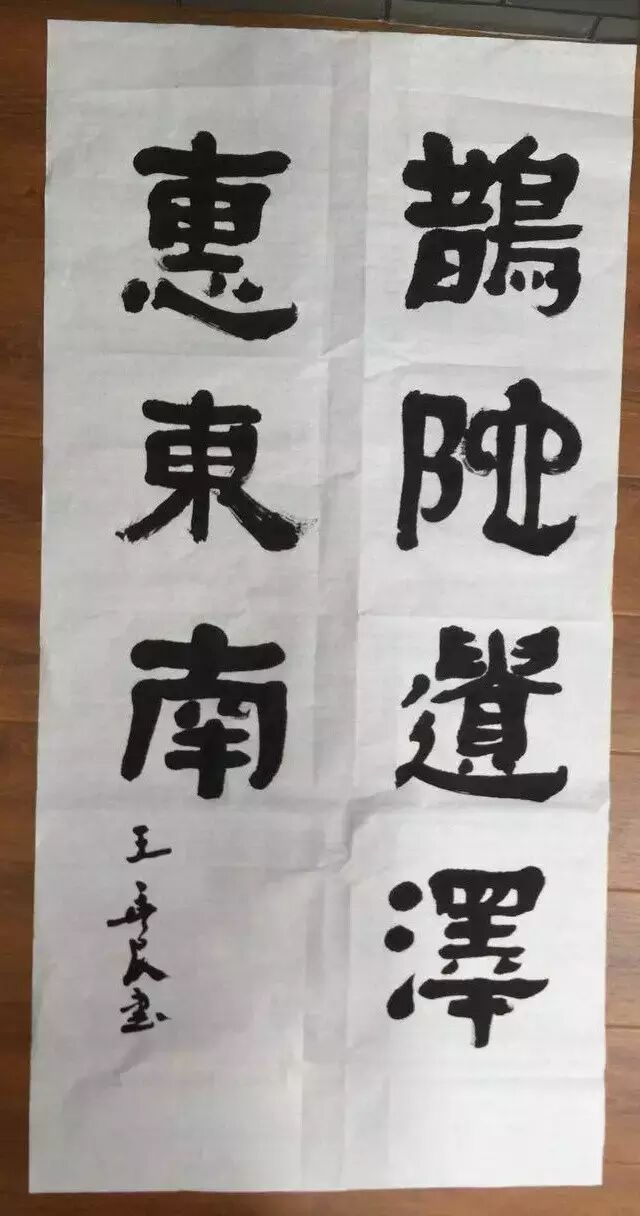 鵲陁遺澤
惠東南
王民書